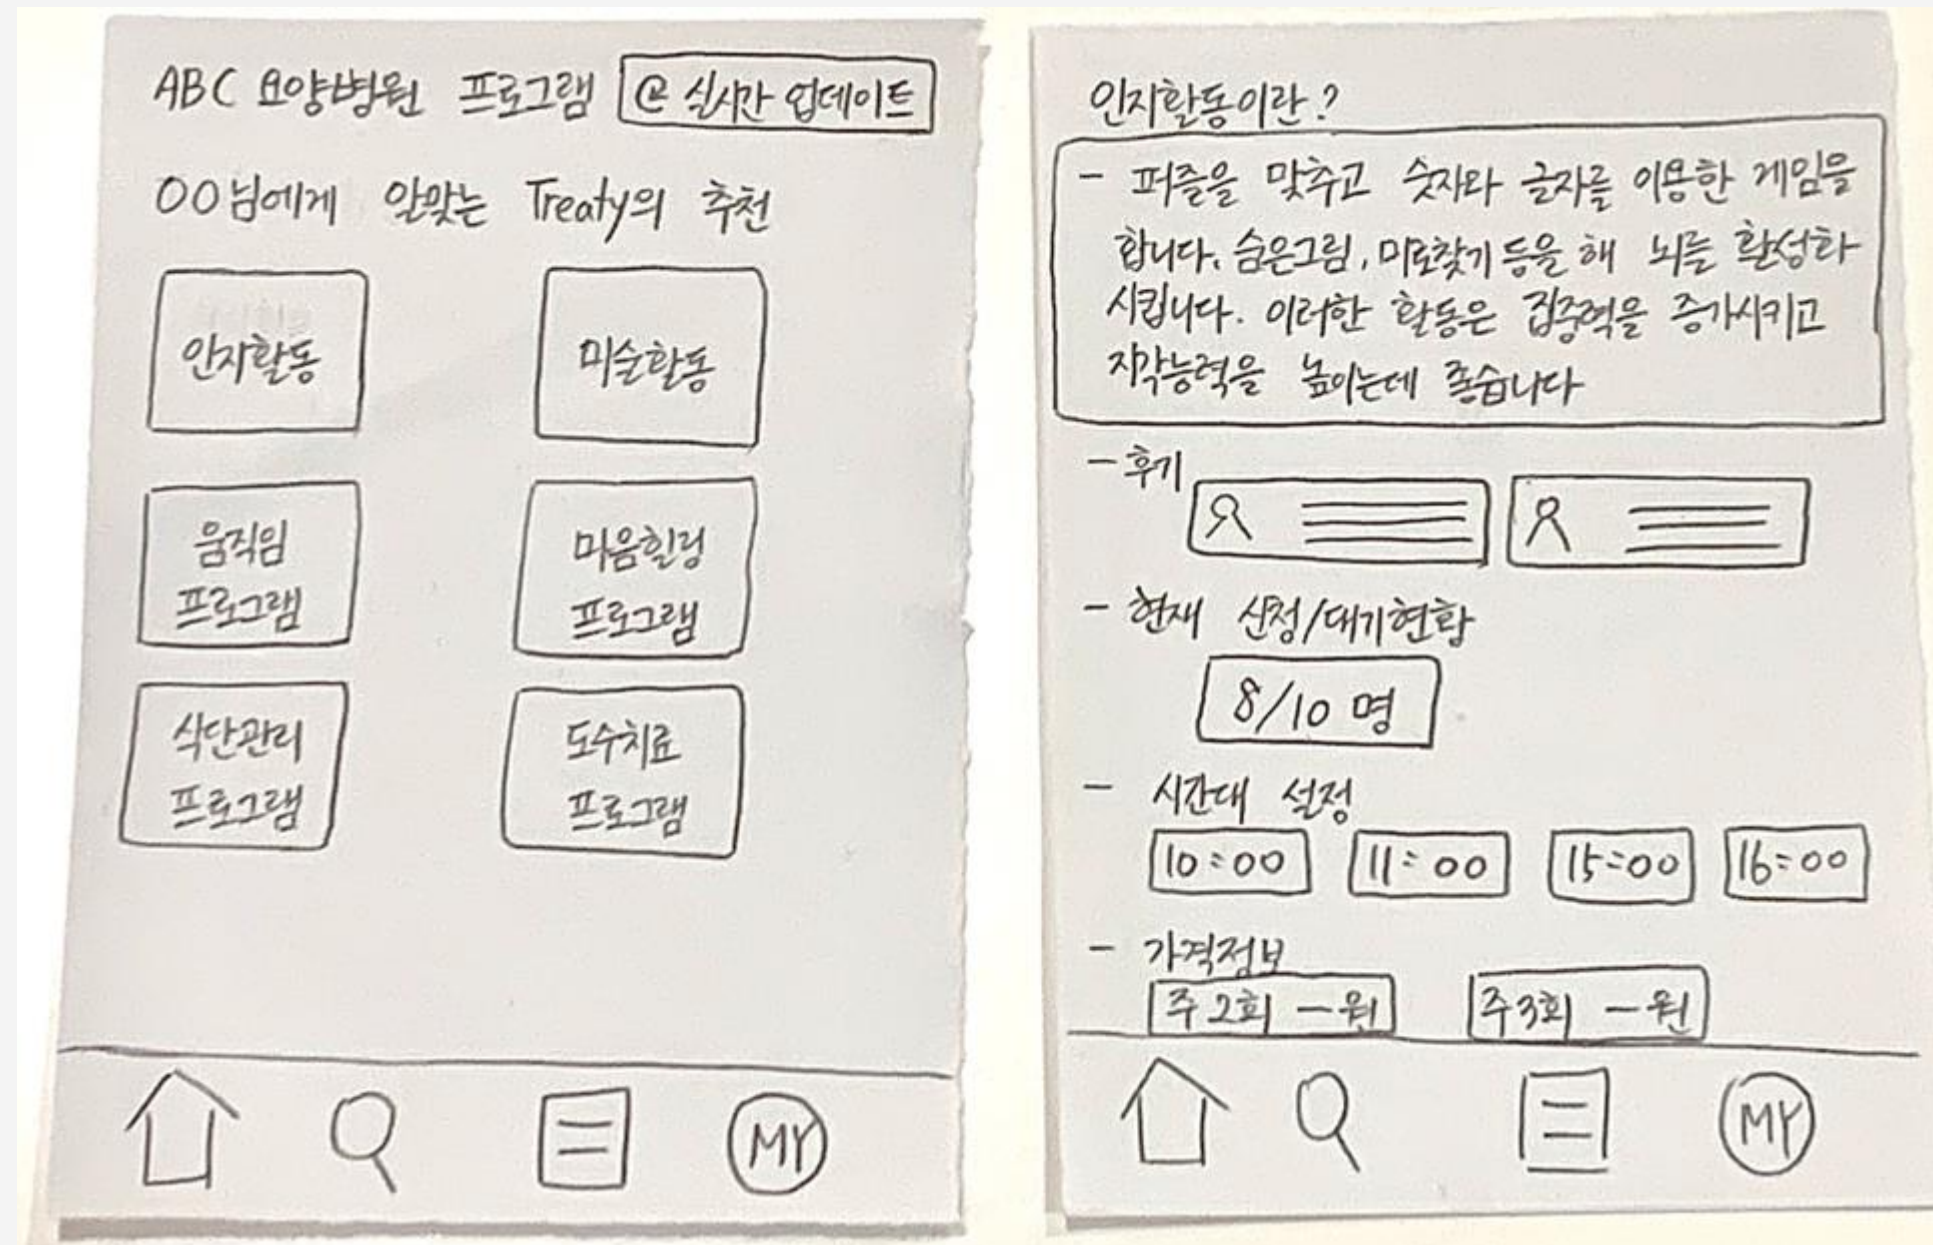 ABC 요양병원 프로그램 @ 실시간 업데이트
OO님에게 알맞는 Treaty의 추천
인지활동
미술활동
움직임
프로그램
마음힐링
프로그램
식단관리
프로그램
도수치료
프로그램
MY
인지활동이란?
- 퍼즐을 맞추고 숫자와 글자를 이용한 게임을
합니다. 숨은그림, 미로찾기 등을 해 뇌를 활성화
시킵니다. 이러한 활동은 집중력을 증가시키고
지각능력을 높이는데 좋습니다
- 후기
- 현재 신청/대기현황
8/10 명
- 시간대 설정
10:00 11:00 15:00 16:00
- 가격정보
주2회 - 원 주3회 - 원
MY